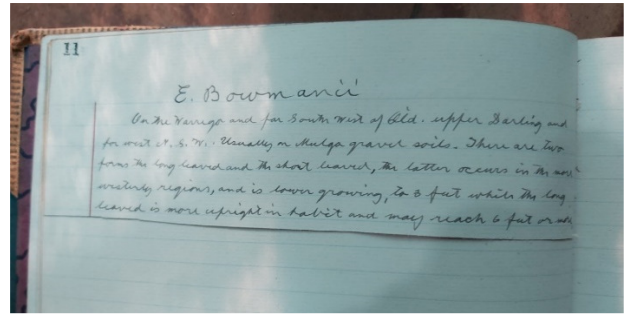 11
E. Bowmanii
On the Warrego and far South West of Qld. upper Darling and
far west N.S.W. Usually on Mulga gravel soils. There are two
forms the long leaved and the short leaved, the latter occurs in the more
westerly regions, and is lower growing, to 3 feet whilst the long
leaved is more upright in habit and may reach 6 feet or